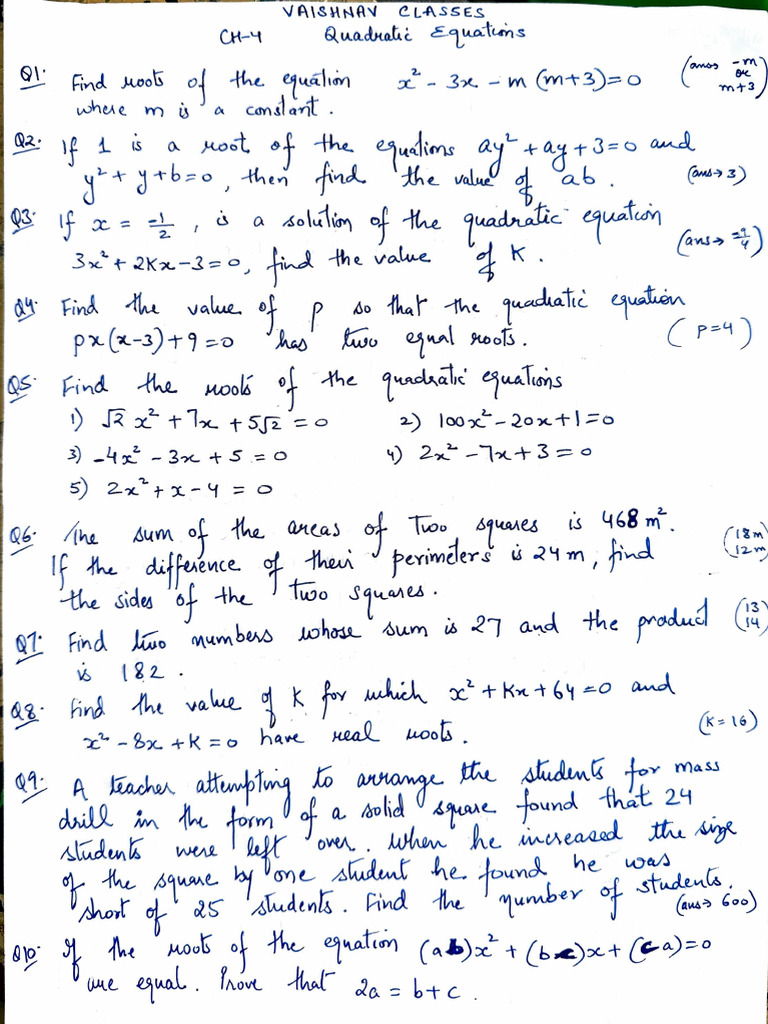 VAISHNAV CLASSES
CH-4 Quadratic Equations
Q1. Find roots of the equation x² - 3x - m (m+3)=0 (ans→ -m or m+3)
where m is a constant.
Q2. If 1 is a root of the equations ay² + ay + 3 = 0 and
y² + y + b = 0, then find the value of ab. (ans→ 3)
Q3. If x = -1/2, is a solution of the quadratic equation
3x² + 2Kx - 3 = 0, find the value of K. (ans→ -9/4)
Q4. Find the value of p so that the quadratic equation
px(x-3) + 9 = 0 has two equal roots. (P=4)
Q5. Find the roots of the quadratic equations
1) √2 x² + 7x + 5√2 = 0 2) 100x² - 20x + 1 = 0
3) -4x² - 3x + 5 = 0 4) 2x² - 7x + 3 = 0
5) 2x² + x - 4 = 0
Q6. The sum of the areas of Two squares is 468 m².
If the difference of their perimeters is 24 m, find (18m 12m)
the sides of the two squares.
Q7. Find two numbers whose sum is 27 and the product (13 14)
is 182.
Q8. Find the value of K for which x² + Kx + 64 = 0 and
x² - 8x + K = 0 have real roots. (K = 16)
Q9. A teacher attempting to arrange the students for mass
drill in the form of a solid square found that 24
students were left over. When he increased the size
of the square by one student he found he was
short of 25 students. Find the number of students. (ans→ 600)
Q10. If the roots of the equation (a b)x² + (b c)x + (c a) = 0
are equal. Prove that 2a = b + c.